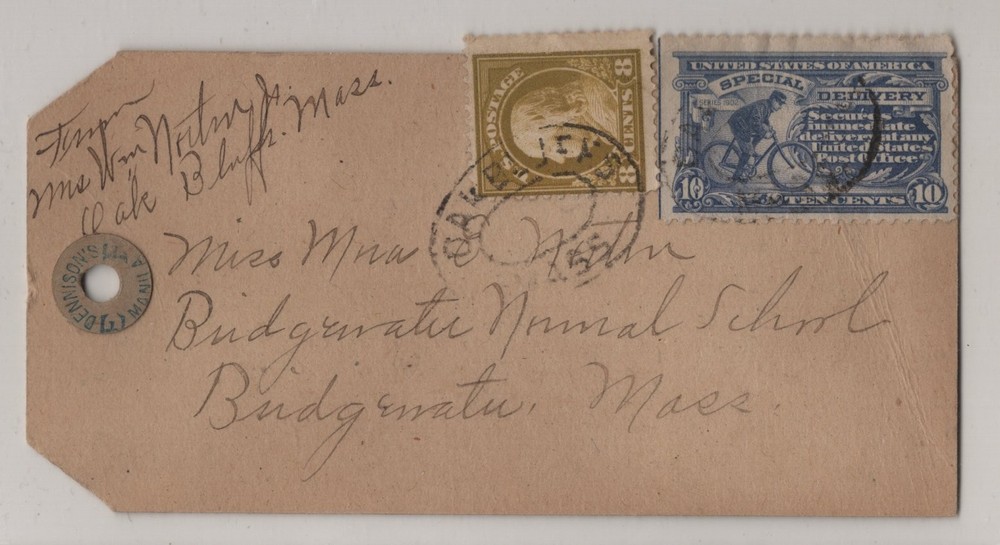 From
Mrs Wm Norton Jr.
Oak Bluffs. Mass.
8 CENTS 8
POSTAGE
UNITED STATES OF AMERICA
SPECIAL DELIVERY
SERIES 1902
Secures
immediate
delivery at any
United States
Post Office
10 TEN CENTS 10
OAK
MASS
DENNISON'S
Miss
Norton
Bridgewater Normal School
Bridgewater. Mass.